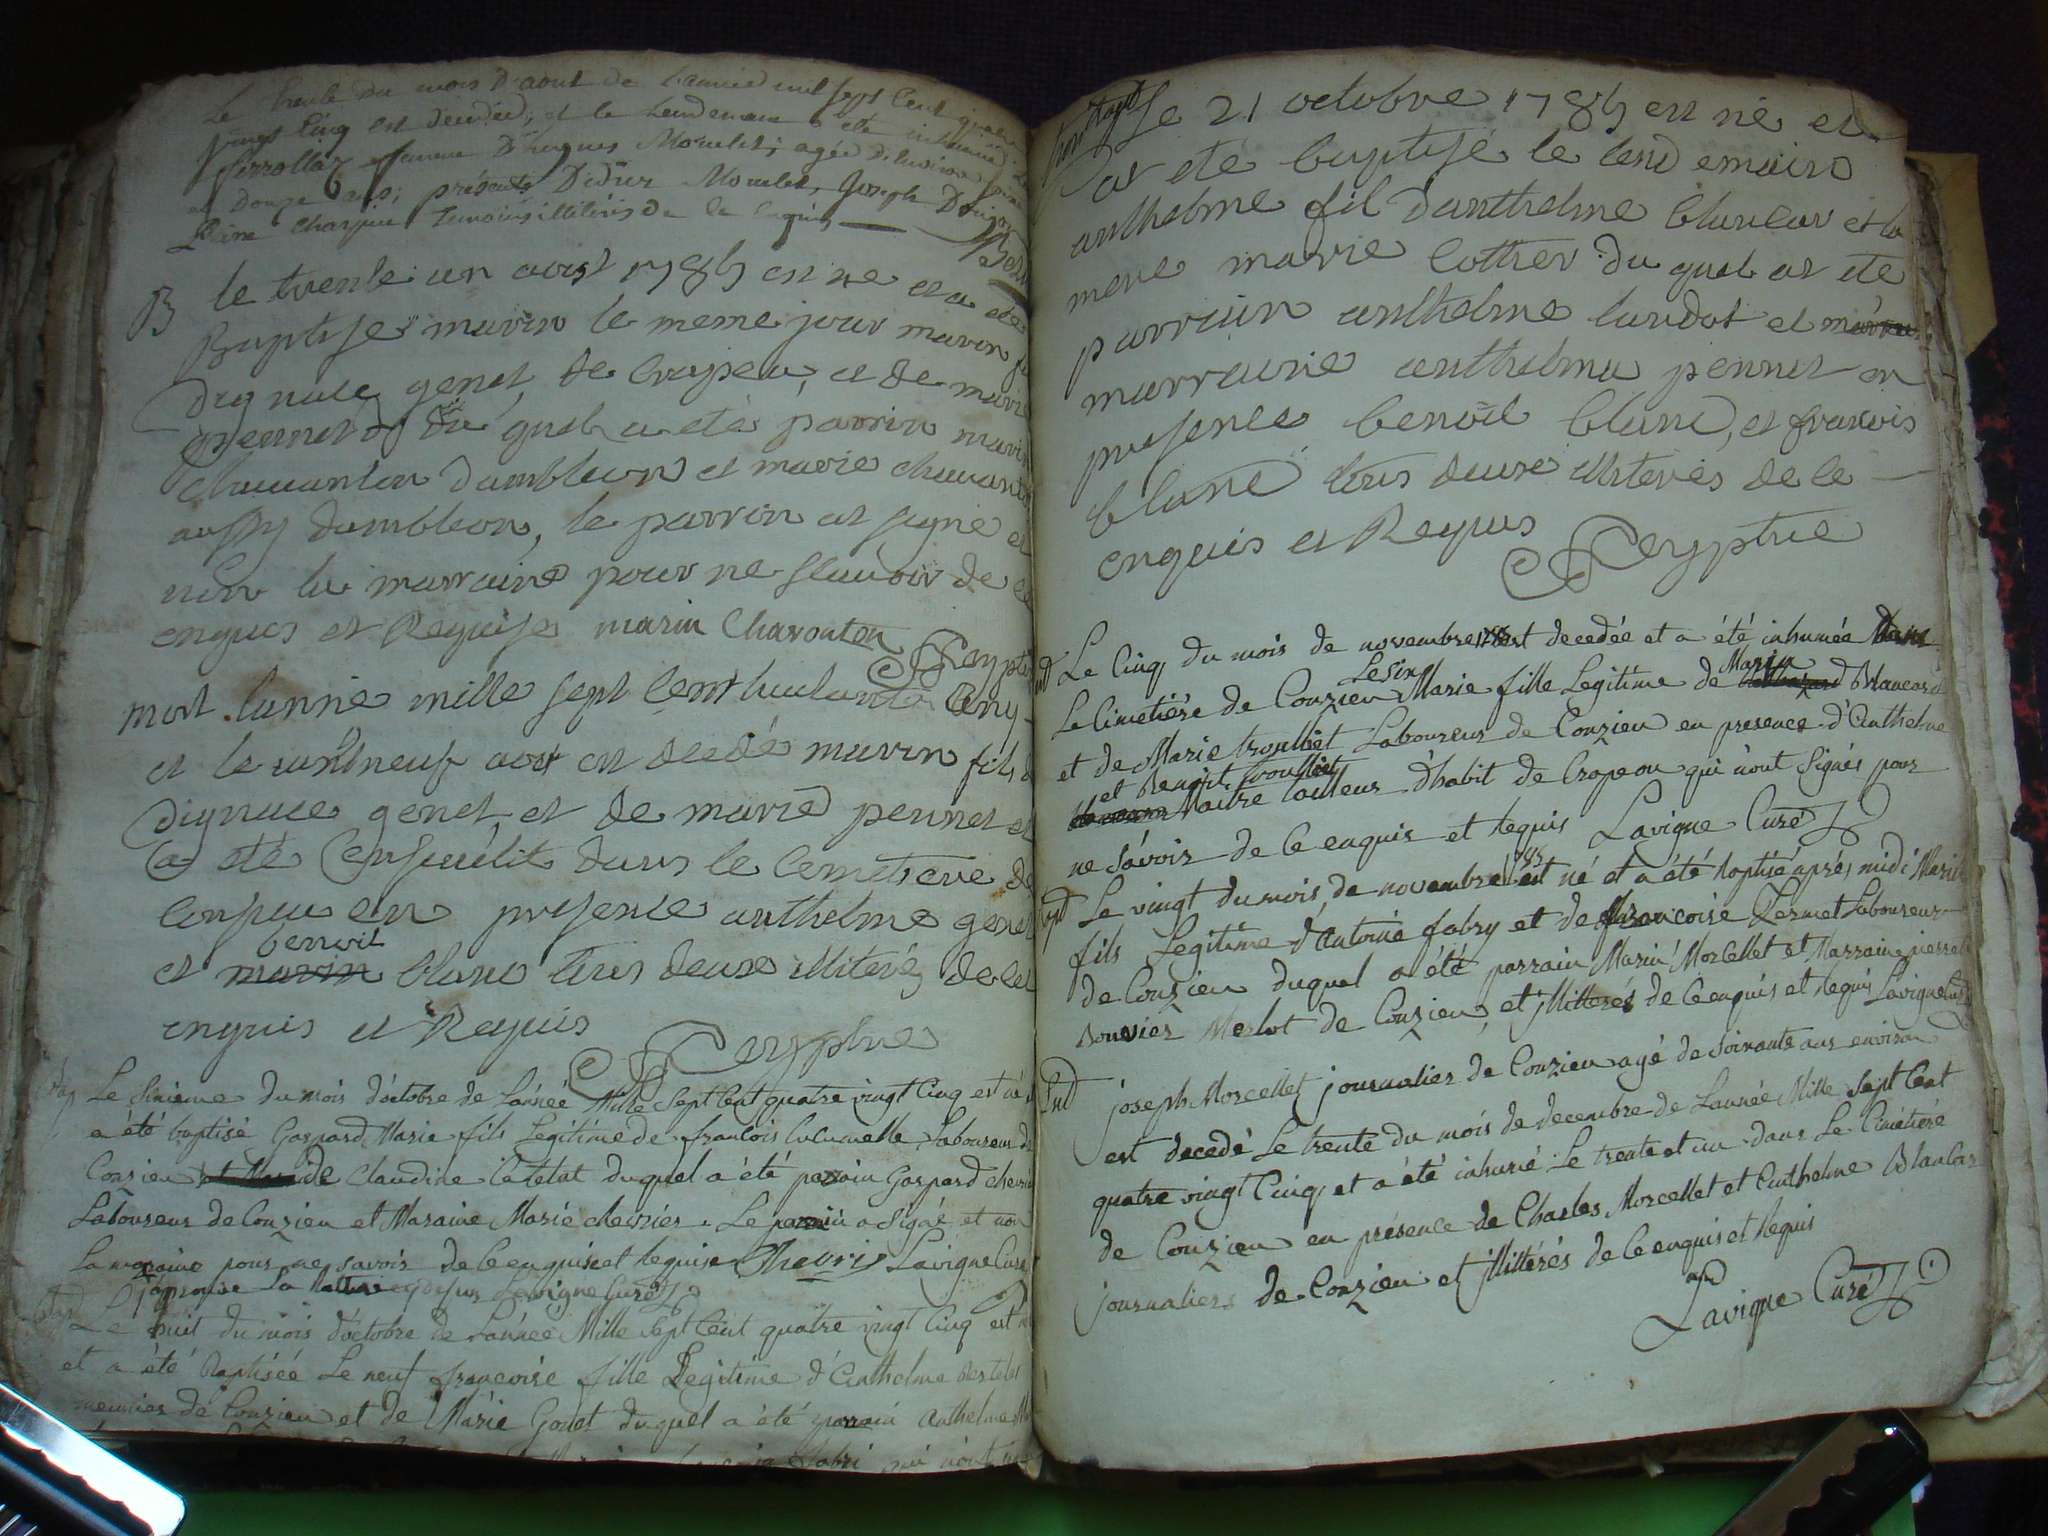 Le trente du mois d'aout de l'année mil sept cent quatre
vingt cinq est décédée, et le lendemain a été inhumée
femme d'hugues Morcelet; agée d'environ
et Douze ans; présents Didier Morcelet, Joseph
Pierre Charpin temoins illiterés de ce enquis
B le trente un aoust 1785 est ne et a ete
Baptise marin le meme jour marin fils
dignace genet de Crapeu, et de marie
pennet du quel a eté parrin marin
Chavanton dambleon et marie chavanton
aussy dambleon, le parrin at signe et
non la marraine pour ne scavoir de ce
enquis et Requise marin Charonton
mort lannie mille sept cent huitante cinq
et le vint neuf aost est decede marin fils de
dignace genet et de marie pennet et
a eté Censevélit dans le cemetiere de
Conpeu en presence anthelme genet
benoit
et marin blanc tous deux illiteres de ce
enquis et Requis
Bap Le sixieme du mois d'octobre de L'année Mille Sept Cent quatre vingt Cinq est né et
a été baptisé Gaspard Marie fils Legitime de francois Cucumelle Laboureur de
Conzieu et Marie de Claudine Catelat duquel a été parrain Gaspard chevrier
Laboureur de Conzieu et Maraine Marie chevrier. Le parrain a Signé et non
La maraine pour ne savoir de Ce enquise et Requise Chevrier Lavigne Curé
j'aprouve La Rature cy dessus Lavigne Curé
Bap Le huit du mois d'octobre de L'année Mille Sept Cent quatre vingt Cinq est née
et a été Baptisée Le neuf francoise fille Legitime d'Anthelme
meunier de Conzieu et de Marie Gonet duquel a été parrain Anthelme
Fabri qui n'ont
Bapt Le 21 octobre 1785 est né et
at eté baptisé le lend emain
anthelme fil danthelme blancar et la
mere marie cottier du quel at eté
parrain anthelme landot et marrai
marraine anthelma pennet en
presence benoit blanc, et francois
blanc tous deux illiterés de ce
enquis et Requis
Ind Le Cinq du mois de novembre 1785 est decedée et a été inhumée dans
Le Cimetiére de Conzieu Marie fille Legitime de Marin Brancard
et de Marie trouilliet Laboureur de Conzieu en presence d'Anthelme
et Benoit trouilliet
Maitre tailleur d'habit de Crapeou qui n'ont Signés pour
ne Savoir de Ce enquis et Requis Lavigne Curé
Bpt Le vingt du mois de novembre 1785 est né et a été baptisé aprés midi Marin
fils Legitime d'Antoine fabry et de francoise Permet Laboureur
de Conzieu duquel a été parrain Marin Morcellet et Marraine pierrette
Bouvier Merlot de Conzieu, et jllitterés de Ce enquis et Requis Lavigne Curé
Ind joseph Morcellet journalier de Conzieu agé de Soixante ans environ
est decedé Le trente du mois de decembre de L'année Mille Sept Cent
quatre vingt Cinq et a été inhumé Le trente et un dans Le Cimétiéré
de Conzieu en présence de Charles Morcellet et Anthelme Blancar
journaliers de Conzieu et jllittérés de Ce enquis et Requis
Lavigne Curé